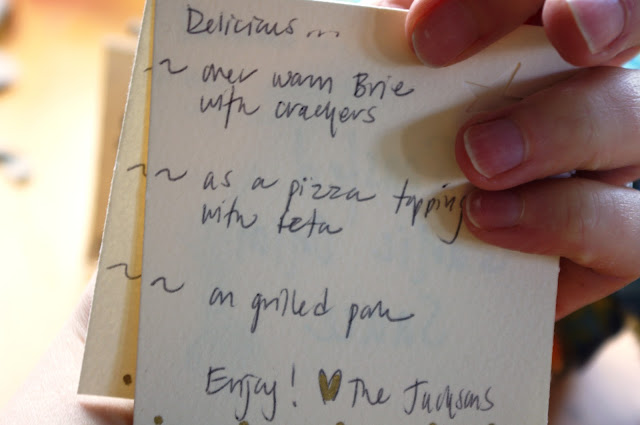 Delicious...
~ over warm Brie
with crackers
~~ as a pizza topping
with feta
~~ on grilled pork
Enjoy! ♥ The Jacksons